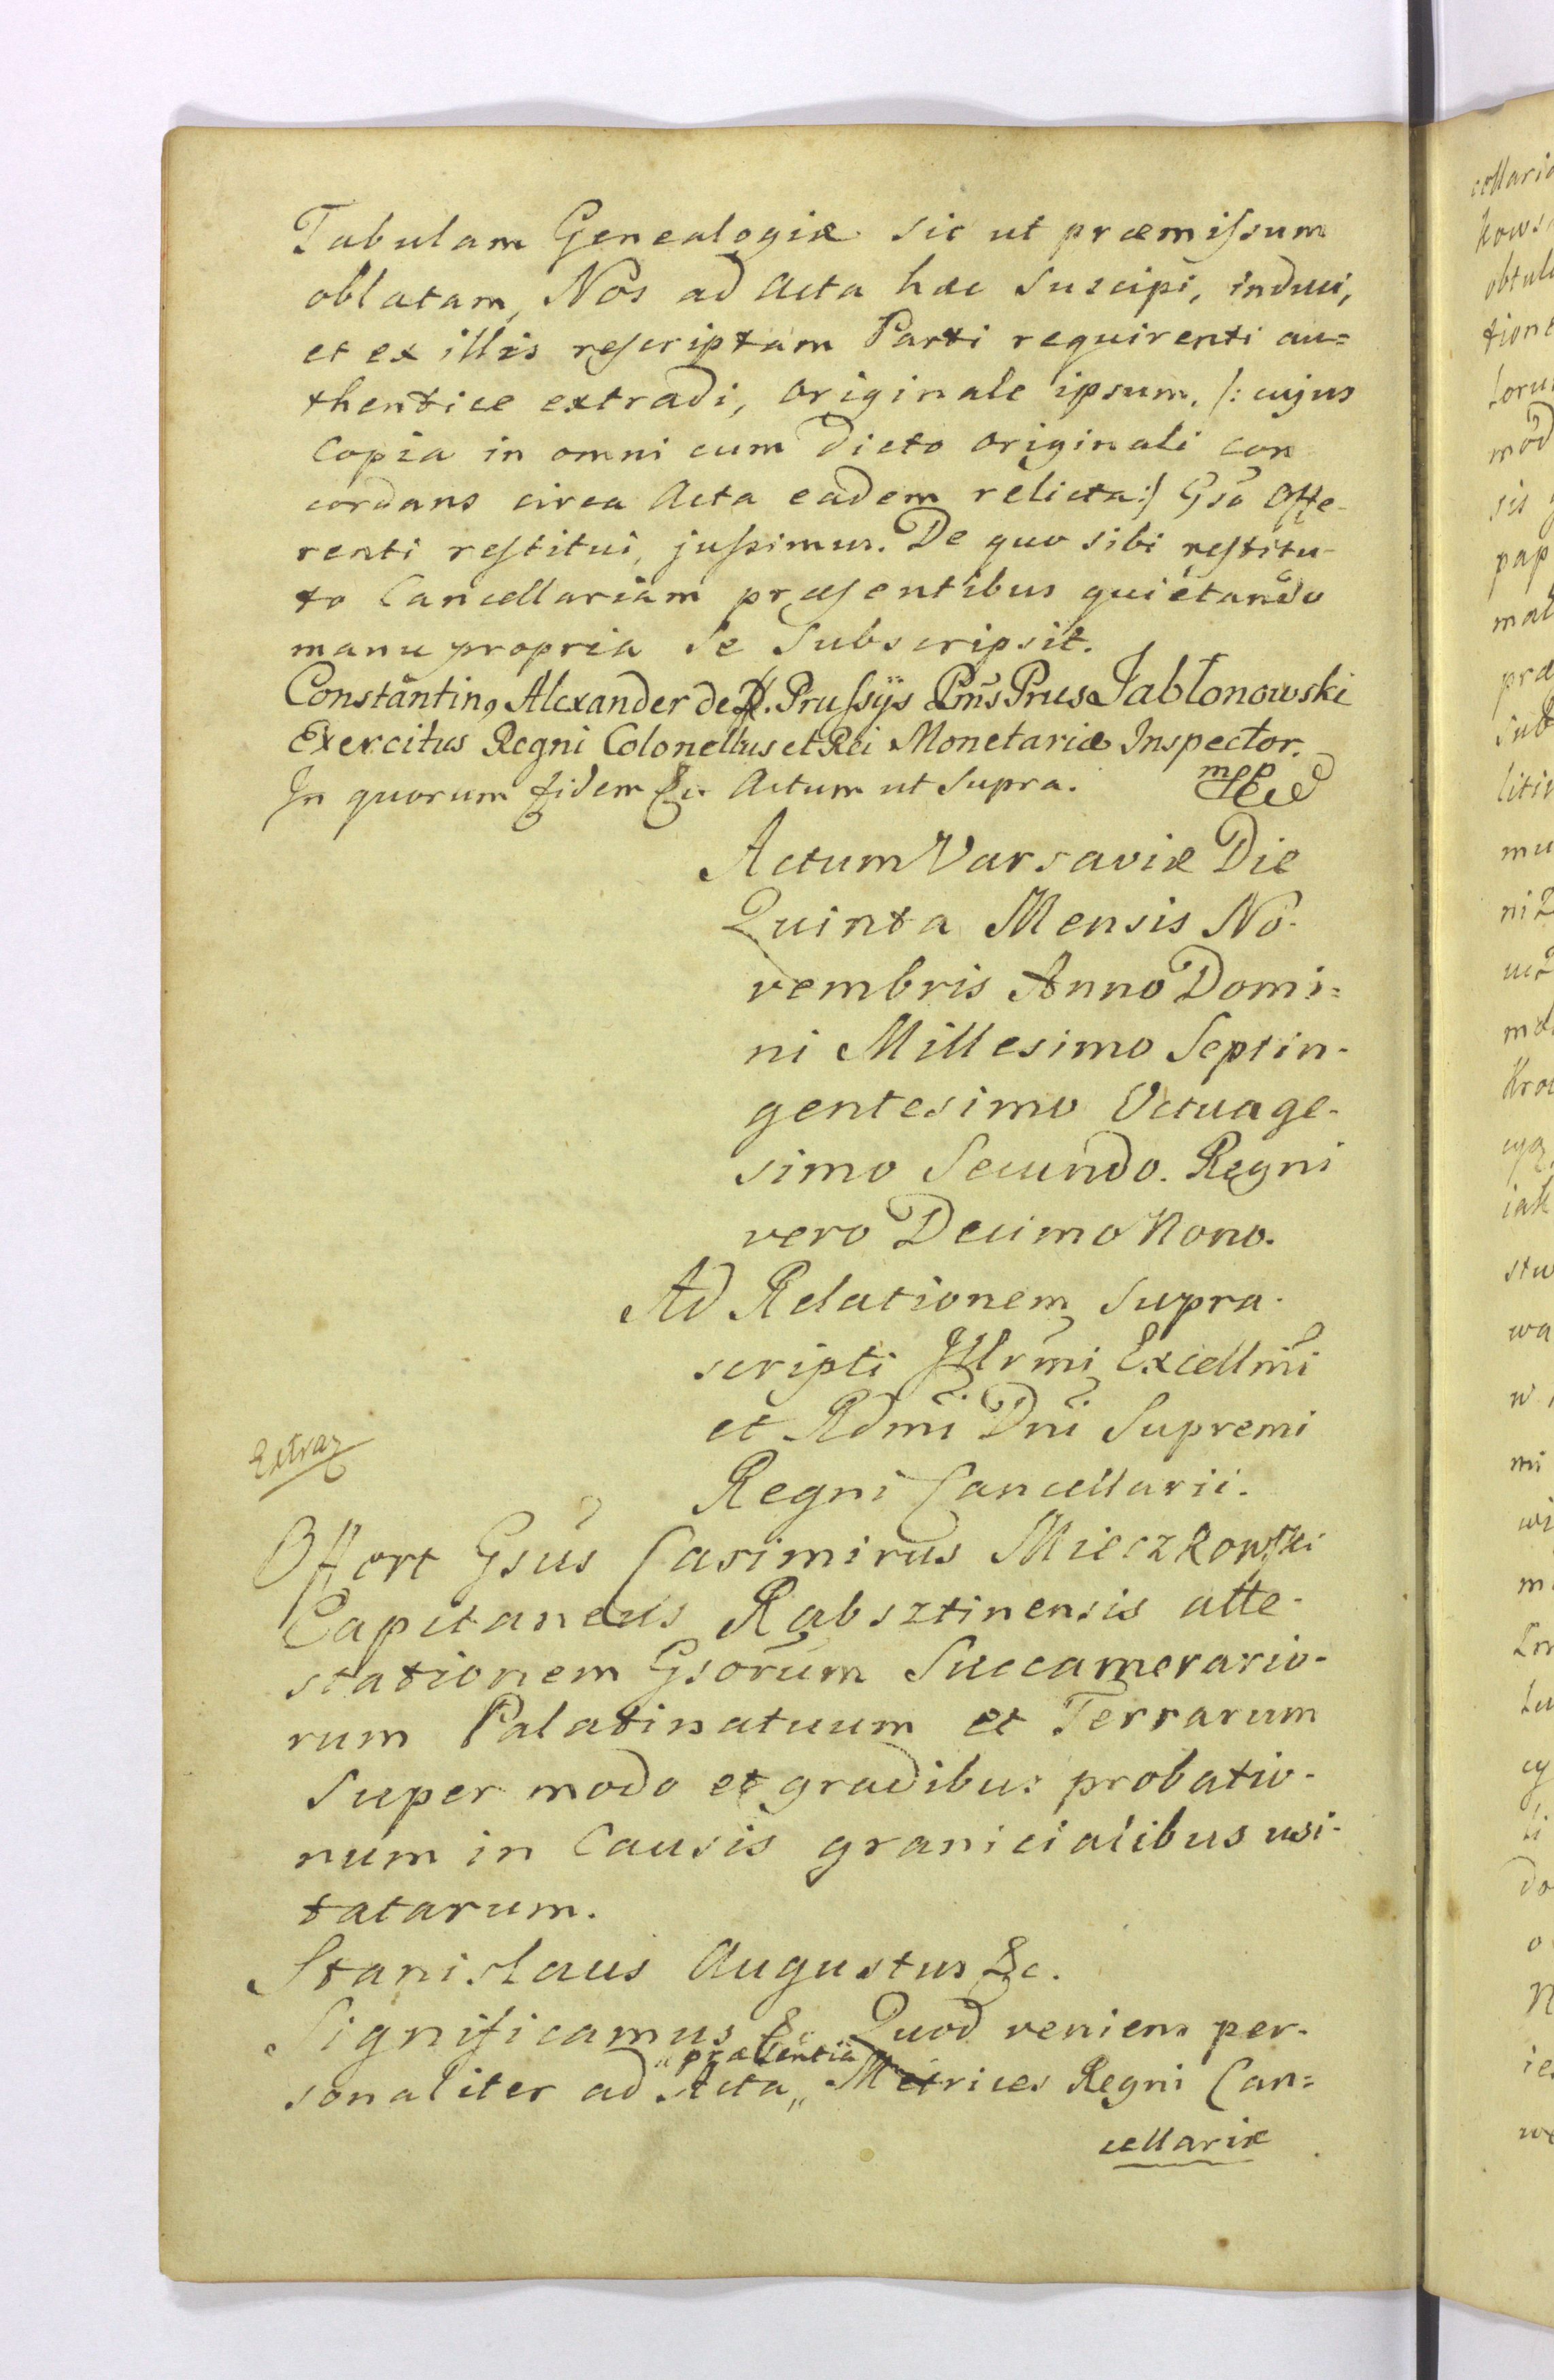 Tabulam Genealogiæ sic ut præmiſsum
oblatam, Nos ad Acta hæc Suscipi, induci,
et ex illis reſcriptam Parti requirenti au=
thentice extradi, originale ipsum, /: cujus
Copia in omni cum dicto originali con
cordans circa Acta eadem relicta :/ Gsō Offe-
renti reſtitui, juſsimus. De quo sibi reſtitu-
to Cancellariam præſentibus quietando
manu propria Se Subscripsit.
Constantin9 Alexander de Pruſsijs Prus Jabłonowski
Exercitus Regni Colonellus et Rei Monetariæ Inspector.
mpp
In quorum fidem &c. Actum ut Supra.
Actum Varsaviæ Die
Quinta Mensis No-
vembris Anno Domi=
ni Millesimo Septin-
gentesimo Octuage-
simo Secundo. Regni
vero Decimo Nono.
Ad Relationem Supra-
scripti Jllrm̄i Excellm̄i
et Rdm̄i Dn̄i Supremi
Regni Cancellarii.
Extra
Offert Gsūs Casimirus Mieczkowſki
Capitaneus Rabsztinensis atte-
stationem Gsōrum Succamerario-
rum Palatinatuum et Terrarum
Super modo et gradibus probatio-
num in Causis granicialibus usi-
tatarum.
Stanislaus Augustus &c.
Significamus &c. Quod veniens per-
„præsentia
sonaliter ad Acta„ Metrices Regni Can=
cellariæ
collaria
kows
obtul
tione
toru
mod
sis
pap
mal
præ
Sub
litin
mu
ni
Kro
iak
stw
wa
w
mi
wi
m
do
o
N
ies
we